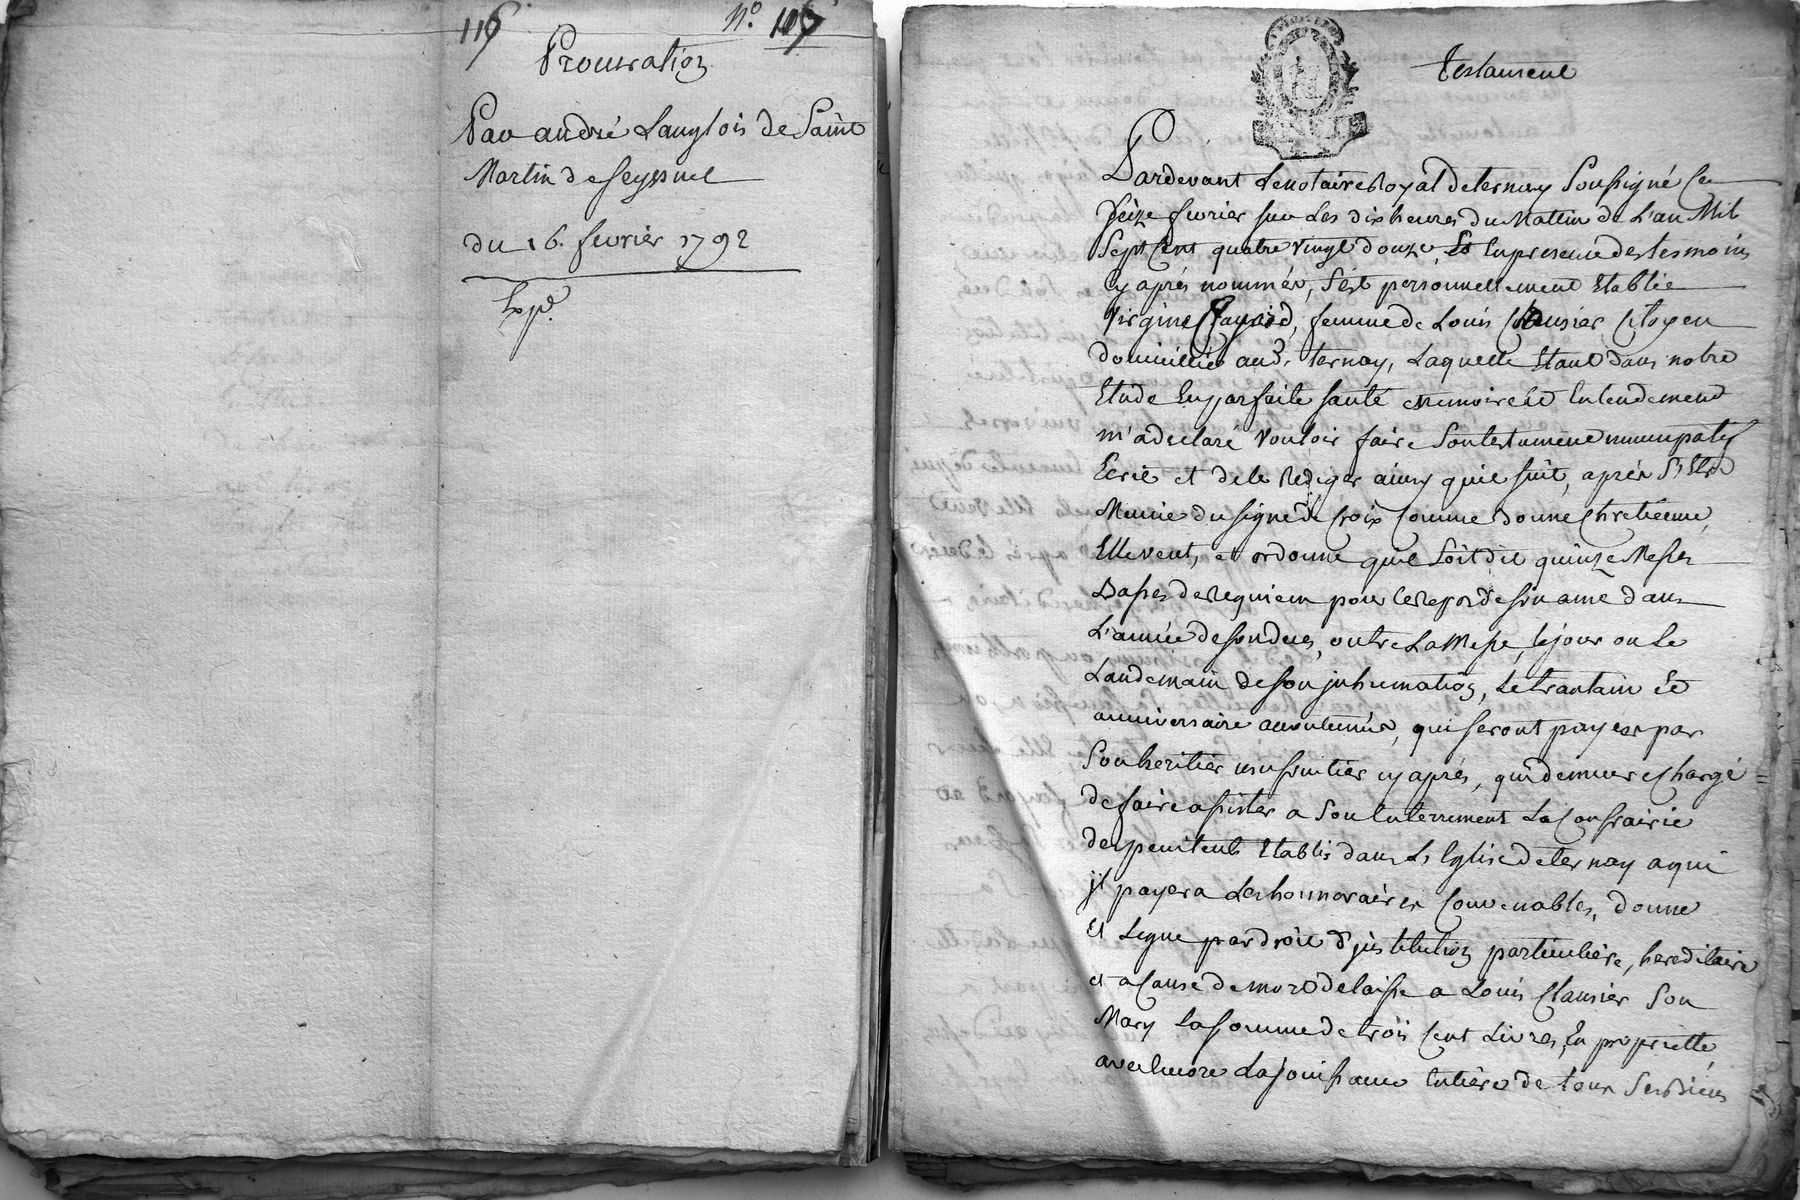 116
N.o 107
Procuration
Par andré Langlois de Saint
Martin de Seyssuel
du 16. fevrier 1792
Exp.é
Testament
Pardevant Le notaire Royal de ternay Soussigné Ce
Seize fevrier sur Les dix heures du Mattin de L'an Mil
Sept Cent quatre vingt douze, Et En presence des tesmoins
Cy aprés nommés, S'est personnellement Etablie
Virginie femme de Louis Clausier Citoyen
domicillié aud. ternay, Laquelle Etant dans notre
Etude En parfaite santé memoire et Entendement
m'a declaré Vouloir faire Son testament nuncupatif
Ecrit et de le Rediger ainsy qu'il suit, aprés S'Etre
Munie du signe de Croix Comme bonne Chretienne,
Elle veut, et ordonne qu'il Soit dit quinze Messes
Basses de requiem pour le Repos de son ame dans
L'année de son deces, outre La Messe, le jour ou Le
Landemain de son inhumation, Le trantain et
anniversaire accoutumés, qui seront payées par
Son heritier usufruitier cy aprés, qui demeure Chargé
de faire assister a Son Enterrement La Confrairie
des penitents Etablis dans L'Eglise de ternay a qui
il payera Les honnoraires Convenables, donne
et Legue par droit d'institution particuliere, hereditaire
et a Cause de mort delaisse a Louis Clausier Son
Mary La somme de trois Cent Livres, En proprietté
avec Encore La jouissance Entiere de tous Ses Biens